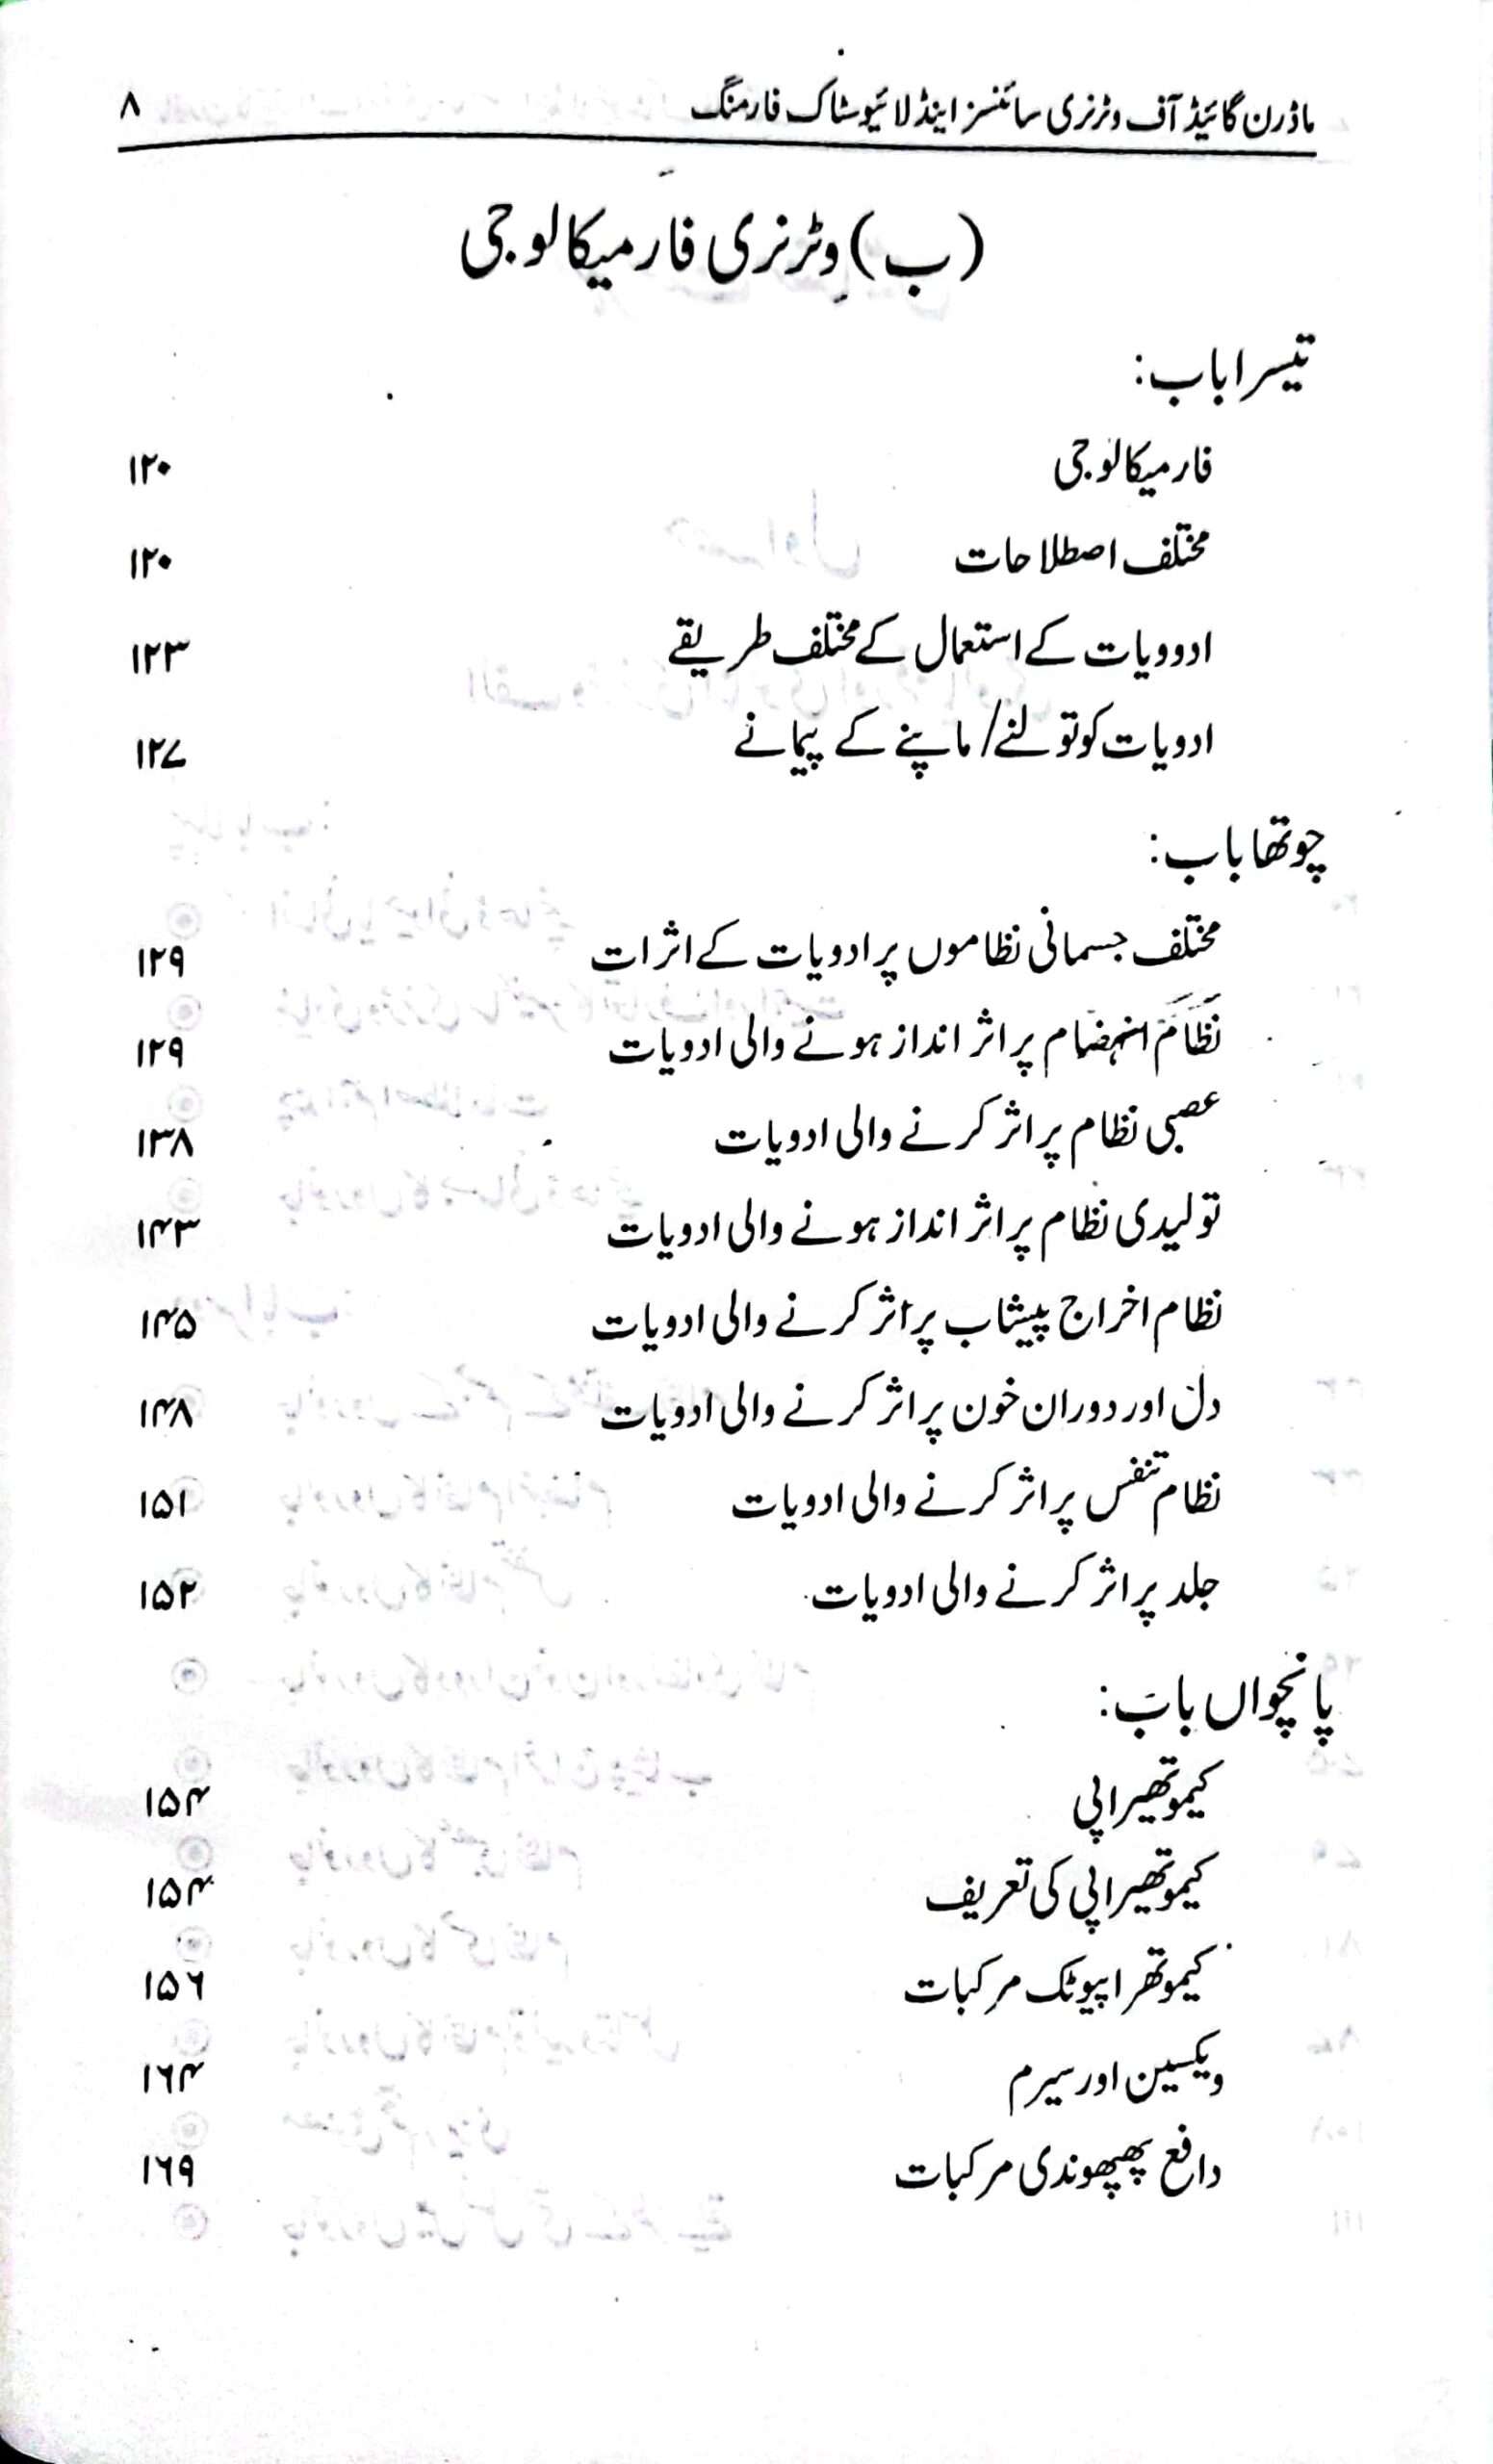 ماڈرن گائیڈ آف وٹرنری سائنسز اینڈ لائیوسٹاک فارمنگ ۸
(ب) وٹرنری فارمیکالوجی
تیسرا باب:
فارمیکالوجی ۱۲۰
مختلف اصطلاحات ۱۲۰
ادوویات کے استعمال کے مختلف طریقے ۱۲۳
ادویات کو تولنے/ ماپنے کے پیمانے ۱۲۷
چوتھا باب:
مختلف جسمانی نظاموں پر ادویات کے اثرات ۱۲۹
نظام انہضام پر اثر انداز ہونے والی ادویات ۱۲۹
عصبی نظام پر اثر کرنے والی ادویات ۱۳۸
تولیدی نظام پر اثر انداز ہونے والی ادویات ۱۴۳
نظام اخراج پیشاب پر اثر کرنے والی ادویات ۱۴۵
دل اور دوران خون پر اثر کرنے والی ادویات ۱۴۸
نظام تنفس پر اثر کرنے والی ادویات ۱۵۱
جلد پر اثر کرنے والی ادویات ۱۵۲
پانچواں باب:
کیموتھیراپی ۱۵۴
کیموتھیراپی کی تعریف ۱۵۴
کیموتھراپیوٹک مرکبات ۱۵۶
ویکسین اور سیرم ۱۶۴
دافع پھپھوندی مرکبات ۱۶۹